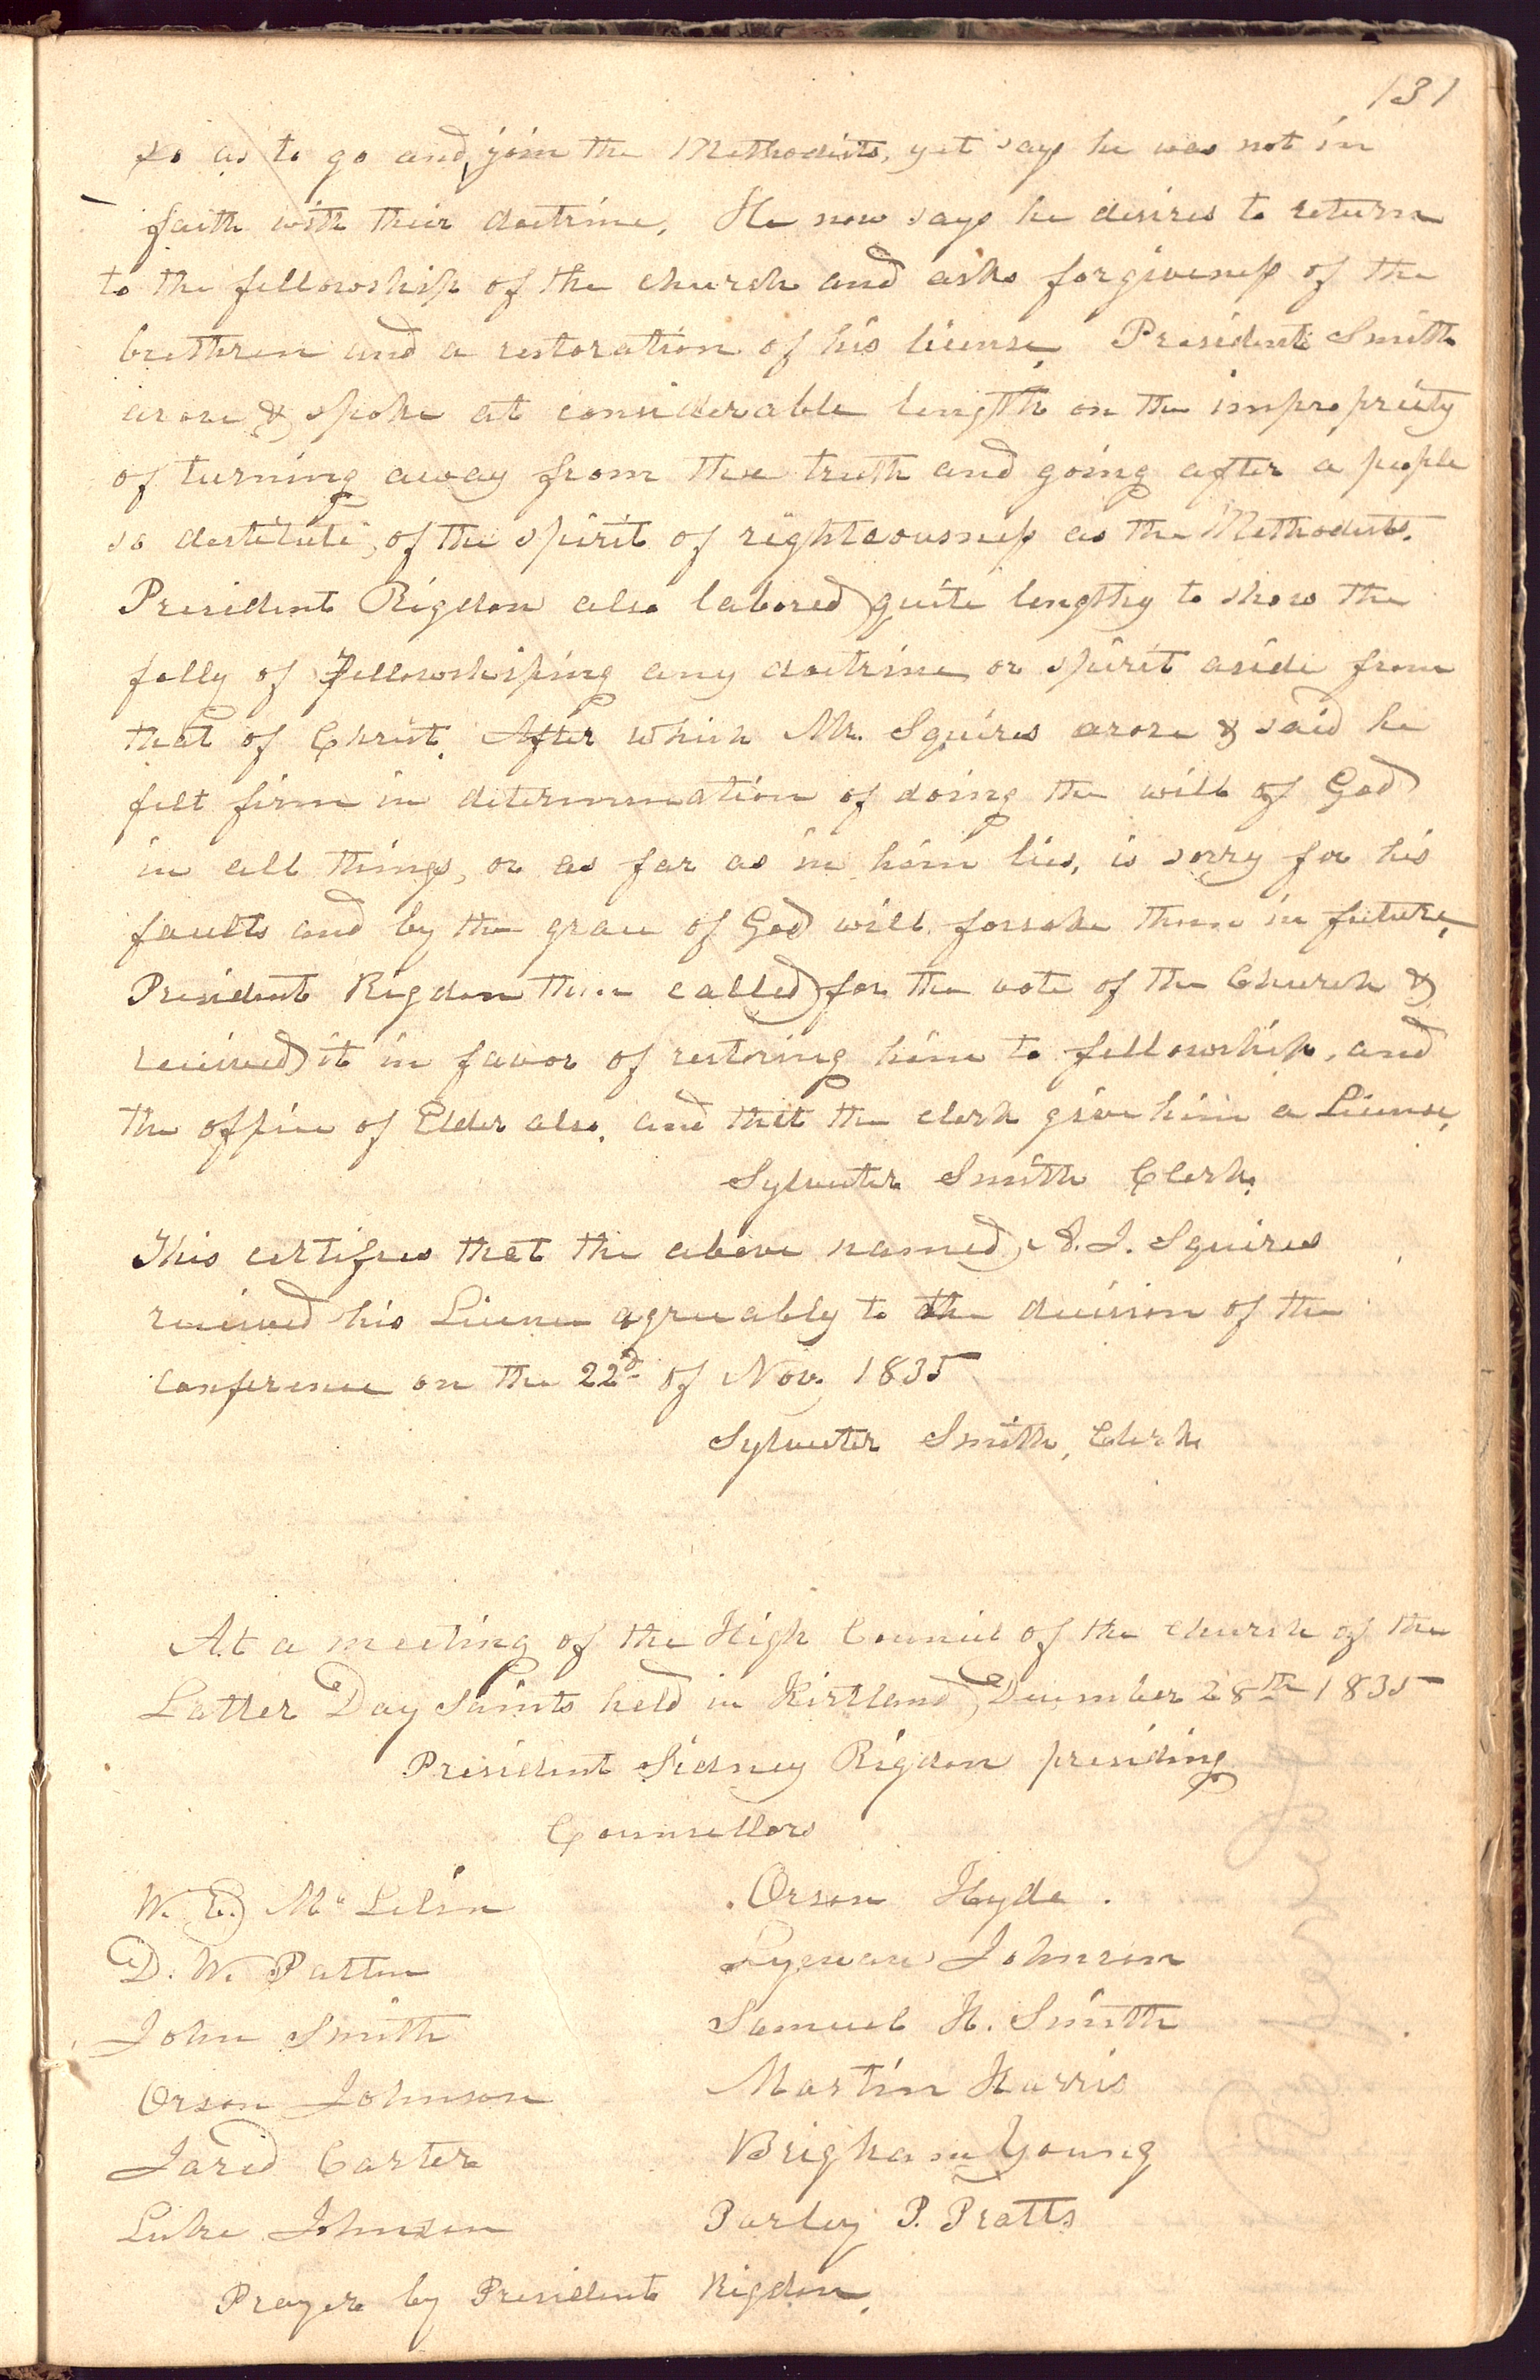 131
so as to go and join the Methodists, yet says he was not in
faith with their doctrine. He now says he desires to return
to the fellowship of the church and asks forgiveness of the
brethren and a restoration of his license. President Smith
arose & spoke at considerable length on the impropriety
of turning away from the truth and going after a people
so destitute, of the spirit of righteousness as the Methodists.
President Rigdon also labored quite lengthy to show the
folly of fellowshiping any doctrine or spirit aside from
that of Christ. After which Mr. Squires arose & said he
felt firm in determination of doing the will of God
in all things, or as far as in him lies, is sorry for his
faults and by the grace of God will forsake them in future,
President Rigdon then called for the vote of the Church &
received it in favor of restoring him to fellowship, and
the office of Elder also. and that the clerk give him a License.
Sylvester Smith Clerk.
This certifies that the above named, A. J. Squires
received his License agreeably to the decision of the
conference on the 22d of Nov. 1835
Sylvester Smith, Clerk
At a meeting of the High Council of the Church of the
Latter Day Saints held in Kirtland, December 28th 1835
President Sidney Rigdon presiding
Counsellors
W. E. McLelin Orson Hyde
D. W. Patten Lyman Johnson
John Smith Samuel H. Smith
Orson Johnson Martin Harris
Jared Carter Brigham Young
Luke Johnson Parley P. Pratts
Prayer by President Rigdon.